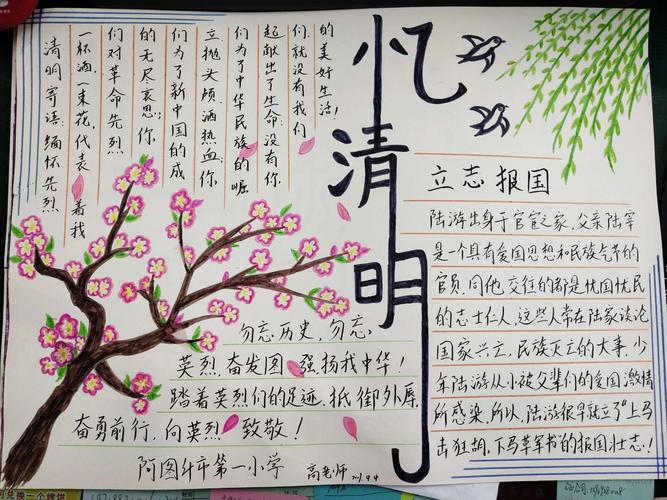 忆清明
清明寄语:缅怀先烈
一杯酒,一束花,代表着我
们对革命先烈
的无尽哀思;你
们为了新中国的成
立抛头颅,洒热血;你
们为了中华民族的崛
起献出了生命;没有你
们,就没有我们
的美好生活!
立志报国
陆游出身于官宦之家,父亲陆宰
是一个具有爱国思想和民族气节的
官员,同他交往的都是忧国忧民
的志士仁人,这些人常在陆家谈论
国家兴亡,民族灭亡的大事,少
年陆游从小被父辈们的爱国激情
所感染,所以,陆游很早就立了“上马
击狂胡,下马草军书”的报国壮志!
勿忘历史,勿忘
英烈,奋发图强扬我中华!
踏着英烈们的足迹,抵御外辱,
奋勇前行,向英烈致敬!
阿图什市第一小学 高老师